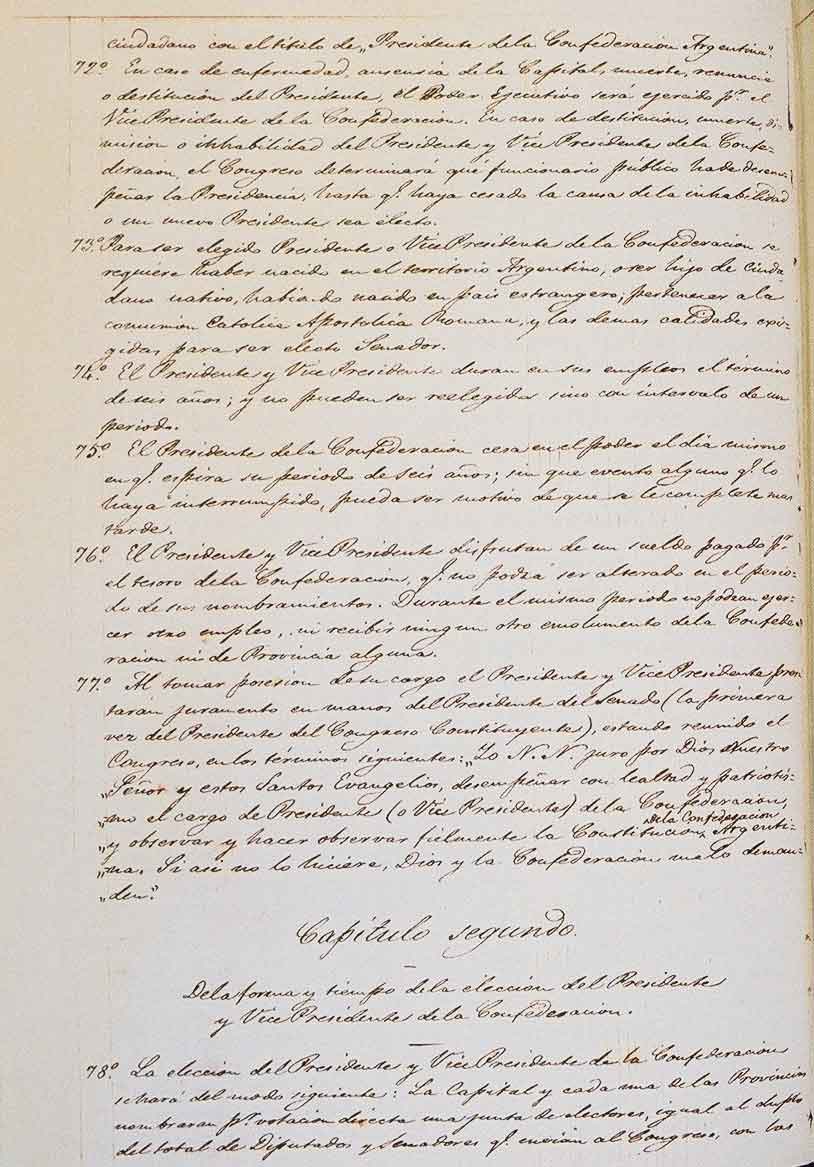 ciudadano con el título de „Presidente de la Confederacion Argentina".
72º. En caso de enfermedad, ausensia de la Capital, muerte, renuncia
o destitucion del Presidente, el Poder Ejecutivo será ejercido pr. el
Vice Presidente de la Confederacion. En caso de destitucion, muerte, di-
mision o inhabilidad del Presidente y Vice Presidente de la Confe-
deracion, el Congreso determinará qué funcionario público ha de desem-
peñar la Presidencia, hasta q.l haya cesado la causa de la inhabilidad
o un nuevo Presidente sea electo.
73º. Para ser elegido Presidente o Vice Presidente de la Confederacion se
requiere haber nacido en el territorio Argentino, o ser hijo de ciuda-
dano nativo, habiendo nacido en pais estrangero; pertenecer a la
comunion Catolica Apostolica Romana, y las demas calidades exi-
gidas para ser electo Senador.
74º. El Presidente y Vice Presidente duran en sus empleos el término
de seis años; y no pueden ser reelegidos sino con intervalo de un
periodo.
75º. El Presidente de la Confederacion cesa en el poder el dia mismo
en q.l espira su periodo de seis años; sin que evento alguno q.l lo
haya interrumpido, pueda ser motivo de que se le complete mas
tarde.
76º. El Presidente y Vice Presidente disfrutan de un sueldo pagado pr.
el tesoro de la Confederacion, q.l no podrá ser alterado en el perio-
do de sus nombramientos. Durante el mismo periodo no podran ejer-
cer otro empleo, ni recibir ningun otro emolumento de la Confede-
racion ni de Provincia alguna.
77º. Al tomar posesion de su cargo el Presidente y Vice Presidente pres
tarán juramento en manos del Presidente del Senado (la primera
vez del Presidente del Congreso Constituyente), estando reunido el
Congreso, en los términos siguientes: „Yo N. N. juro por Dios Nuestro
„Señor y estos Santos Evangelios, desempeñar con lealtad y patriotis-
„mo el cargo de Presidente (o Vice Presidente) de la Confederacion,
de la Confederacion
„y observar y hacer observar fielmente la Constitucion Argenti-
„na. Si asi no lo hiciere, Dios y la Confederacion me lo deman-
„den."
Capítulo segundo.
De la forma y tiempo de la eleccion del Presidente
y Vice Presidente de la Confederacion.
78º. La eleccion del Presidente y Vice Presidente de la Confederacion
se hará del modo siguiente: La Capital y cada una de las Provincias
nombraran pr. votacion directa una junta de electores, igual al duplo
del total de Diputados y Senadores q.l envian al Congreso, con las